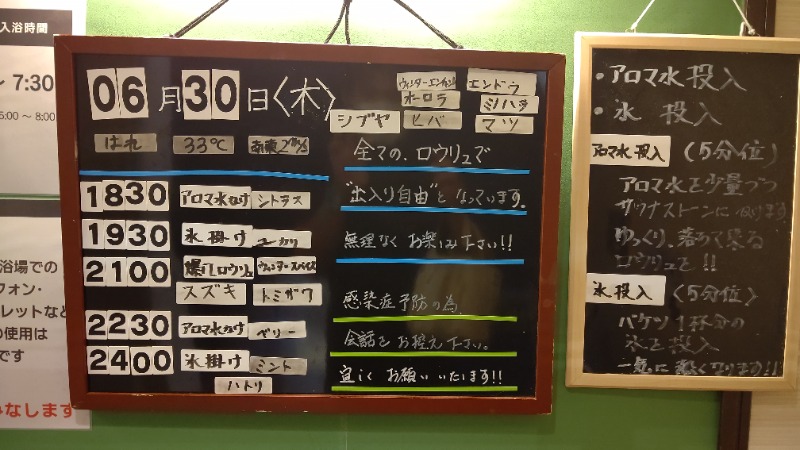 入浴時間
~ 7:30
5:00 ~ 8:00
浴場での
フォン・
レットなど
の使用は
です
なします
06月30日〈木〉
はれ 33℃
ウィンターエンチャント エンドウ
オーロラ ミノハラ
シブヤ ヒバ マツ
1830 アロマ水かけ シトラス
1930 氷掛け ユーカリ
2100 爆風ロウリュ ウィンタースパイス
スズキ トミザワ
2230 アロマ水かけ ベリー
2400 氷掛け ミント
ハトリ
全ての、ロウリュで
"出入り自由"となっています。
無理なくお楽しみ下さい!!
感染症予防の為、
会話をお控え下さい。
宜しくお願いいたします!!
・アロマ水投入
・氷投入
アロマ水投入 (5分位)
アロマ水を少量づつ
サウナストーンにかけます
ゆっくり、落ちて来る
ロウリュです!!
氷投入 〈5分位〉
バケツ1杯分の
氷を投入
一気に熱くなります!!